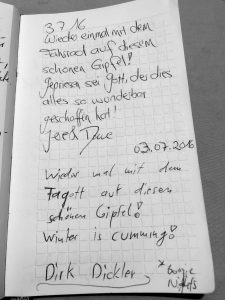 3.7.16
Wieder einmal mit dem
Fahrrad auf diesem
schönen Gipfel!
Gepriesen sei Gott, der dies
alles so wunderbar
geschaffen hat!
03.07.2016
Wieder mal mit dem
Fagott auf diesen
schönen Gipfel!
Winter is cumming!
Dirk Dickler